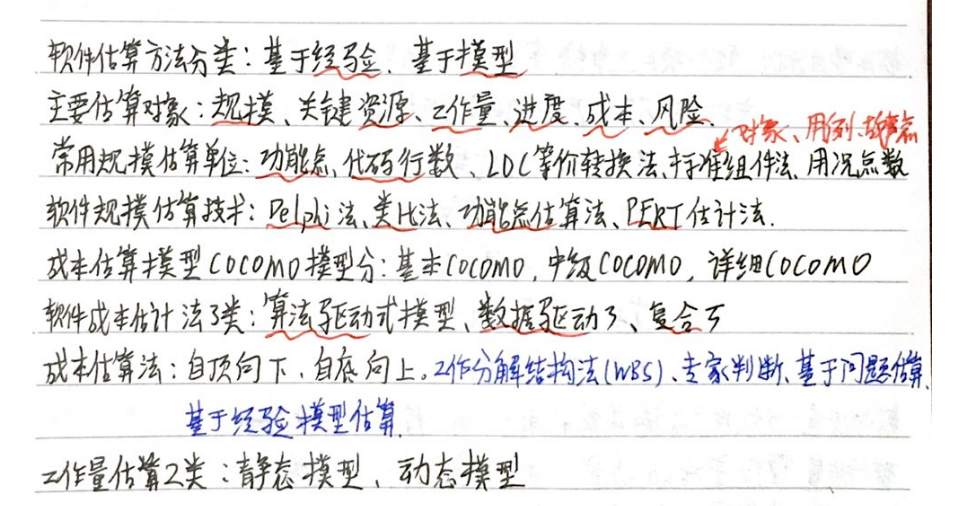 软件估算方法分类：基于经验、基于模型
主要估算对象：规模、关键资源、工作量、进度、成本、风险.
对象、用例、故事点
常用规模估算单位：功能点、代码行数、LOC等价转换法、标准组件法、用况点数
软件规模估算技术：Delphi法、类比法、功能点估算法、PERT估计法.
成本估算模型COCOMO模型分：基本COCOMO，中级COCOMO，详细COCOMO
软件成本估计法3类：算法驱动式模型、数据驱动了、复合了
成本估算法：自顶向下、自底向上。工作分解结构法(WBS)、专家判断、基于问题估算、
基于经验模型估算.
工作量估算2类：静态模型、动态模型